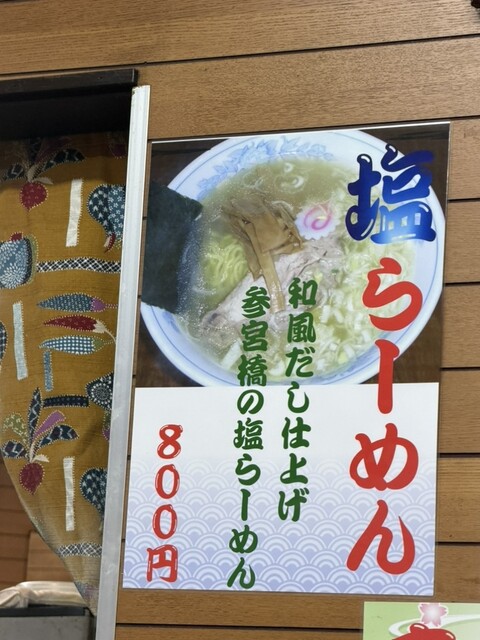 塩らーめん
和風だし仕上げ
参宮橋の塩らーめん
800円